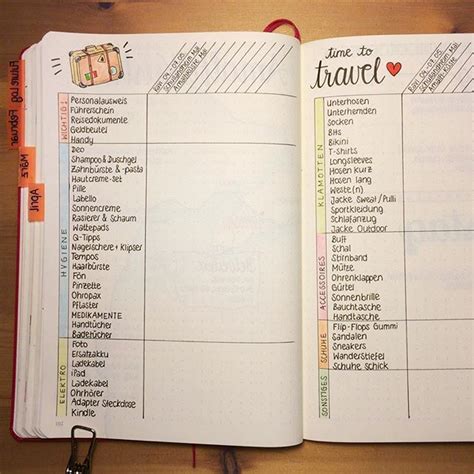 Future Log
Februar
März
April
Bari 04.-07.05.
Schullandheim Mai
WICHTIG!
Personalausweis
Führerschein
Reisedokumente
Geldbeutel
Handy
HYGIENE
Deo
Shampoo & Duschgel
Zahnbürste & -pasta
Hautcreme-Set
Pille
Labello
Sonnencreme
Rasierer & Schaum
Wattepads
Q-Tipps
Nagelschere + Klipser
Tempos
Haarbürste
Fön
Pinzette
Ohropax
Pflaster
MEDIKAMENTE
Handtücher
Badetücher
ELEKTRO
Foto
Ersatzakku
Ladekabel
iPad
Ladekabel
Ohrhörer
Adapter Steckdose
Kindle
time to
travel
Bari 04.-07.05.
Schullandheim Mai
KLAMOTTEN
Unterhosen
Unterhemden
Socken
BHs
Bikini
T-Shirts
Longsleeves
Hosen kurz
Hosen lang
Weste(n)
Jacke Sweat / Pulli
Sportkleidung
Schlafanzug
Jacke Outdoor
ACCESSOIRES
Buff
Schal
Stirnband
Mütze
Ohrenklappen
Gürtel
Sonnenbrille
Bauchtasche
Handtasche
SCHUHE
Flip-Flops Gummi
Sandalen
Sneakers
Wanderstiefel
Schuhe schick
SONSTIGES